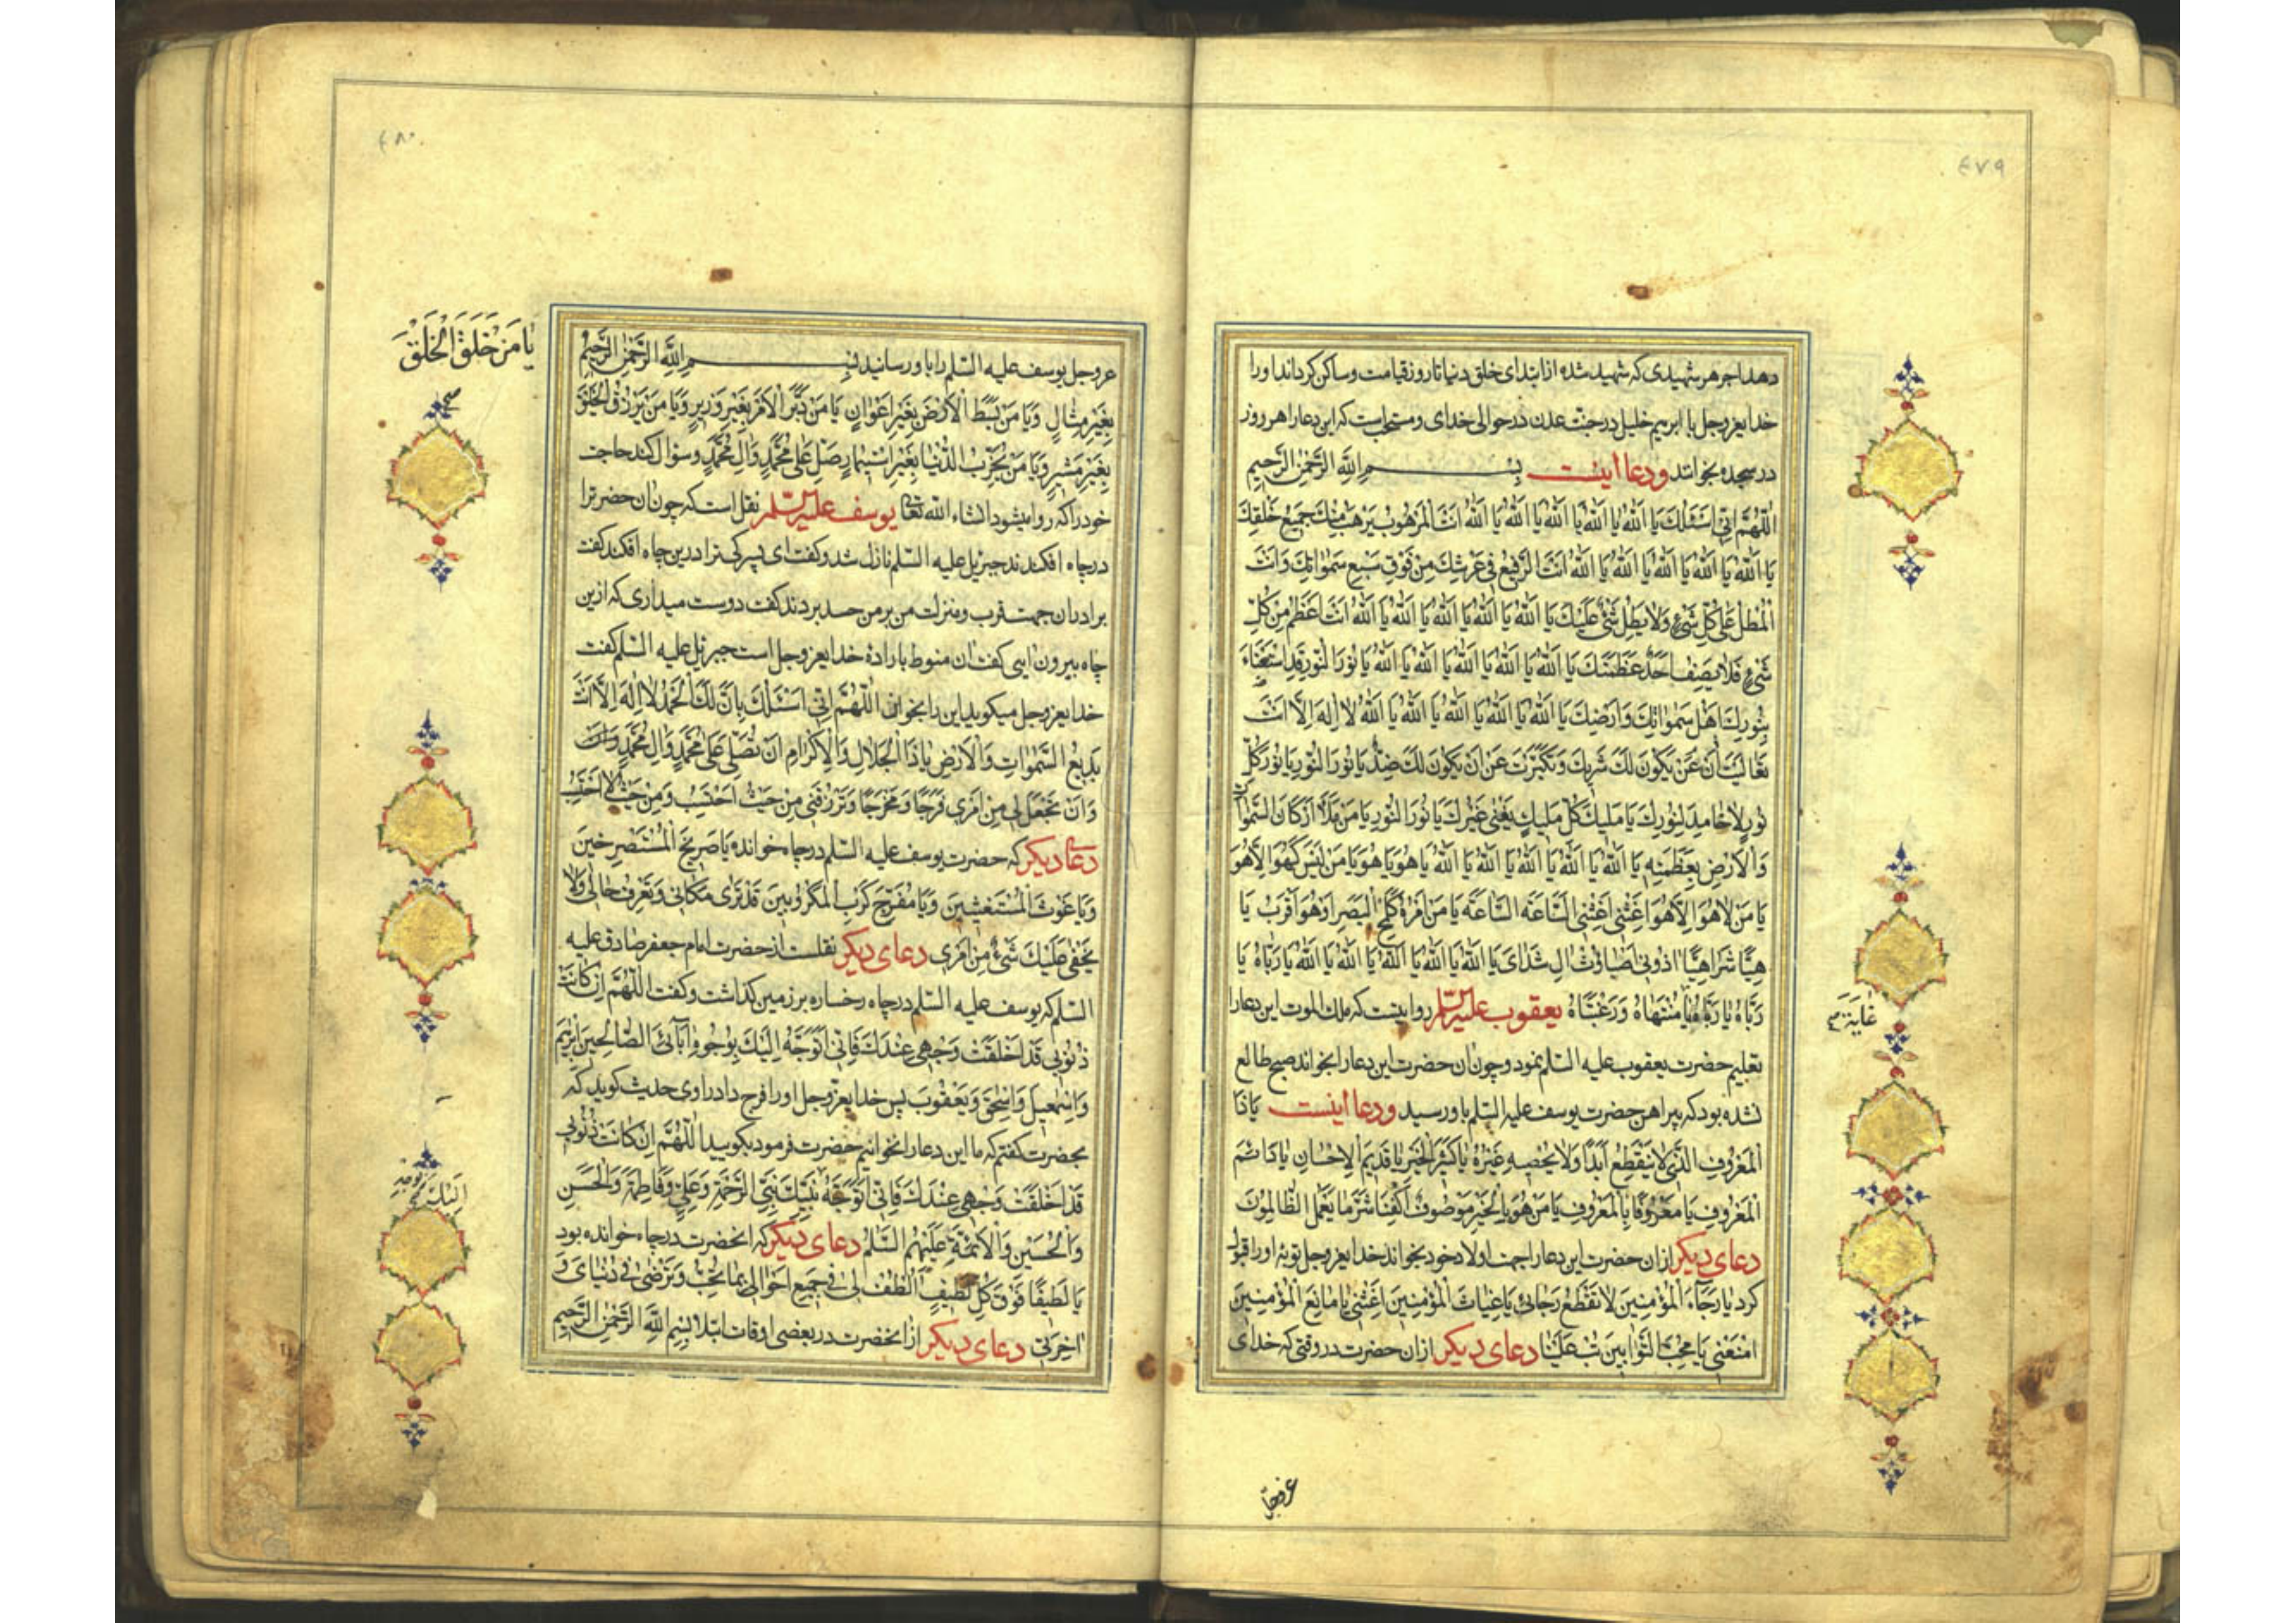 ٤٧٩
دهد اجر هر شهیدی که شهید شده از ابتدای خلق دنیا تا روز قیامت و ساکن کرداند او را
خدایعزوجل با ابرهیم خلیل در جنت عدن در حوالی خدای و مستحبست که این دعا را هر روز
در سجده بخواند ودعا اینست بِسْمِ اللّٰهِ الرَّحْمٰنِ الرَّحِیمِ
اَللّٰهُمَّ اِنّی اَسْئَلُكَ یَا اَللّٰهُ یَا اَللّٰهُ یَا اَللّٰهُ یَا اَللّٰهُ یَا اَللّٰهُ یَا اَللّٰهُ اَنْتَ الْمَرْهُوبُ یَرْهَبُ مِنْكَ جَمیعُ خَلْقِكَ
یَا اَللّٰهُ یَا اَللّٰهُ یَا اَللّٰهُ یَا اَللّٰهُ یَا اَللّٰهُ یَا اَللّٰهُ اَنْتَ الرَّفیعُ فی عَرْشِكَ مِنْ فَوْقِ سَبْعِ سَمٰوٰاتِكَ وَاَنْتَ
الْمُطِلُّ عَلٰی كُلِّ شَیْءٍ وَلاٰ یُطِلُّ شَیْءٌ عَلَیْكَ یَا اَللّٰهُ یَا اَللّٰهُ یَا اَللّٰهُ یَا اَللّٰهُ یَا اَللّٰهُ یَا اَللّٰهُ اَنْتَ اَعْظَمُ مِنْ كُلِّ
شَیْءٍ فَلاٰ یَصِفُ اَحَدٌ عَظَمَتَكَ یَا اَللّٰهُ یَا اَللّٰهُ یَا اَللّٰهُ یَا اَللّٰهُ یَا اَللّٰهُ یَا اَللّٰهُ یَا نُورَ النُّورِ قَدِ اسْتَضٰاءَ
بِنُورِكَ اَهْلُ سَمٰوٰاتِكَ وَاَرْضِكَ یَا اَللّٰهُ یَا اَللّٰهُ یَا اَللّٰهُ یَا اَللّٰهُ یَا اَللّٰهُ یَا اَللّٰهُ لاٰ اِلٰهَ اِلاّٰ اَنْتَ
تَعٰالَیْتَ اَنْ عَنْ یَكُونَ لَكَ شَریكٌ وَتَكَبَّرْتَ عَنْ اَنْ یَكُونَ لَكَ ضِدٌّ یٰا نُورَ النُّورِ یٰا نُورَ كُلِّ
نُورٍ لاٰ خٰامِدَ لِنُورِكَ یٰا مَلیكَ كُلِّ مَلیكٍ یَفْنٰی غَیْرُكَ یٰا نُورَ النُّورِ یٰا مَنْ مَلَأَ اَرْكٰانَ السَّمٰوٰاتِ
وَالْاَرْضِ بِعَظَمَتِهِ یَا اَللّٰهُ یَا اَللّٰهُ یَا اَللّٰهُ یَا اَللّٰهُ یَا اَللّٰهُ یَا اَللّٰهُ یَا هُوَ یَا هُوَ یٰا مَنْ لَیْسَ كَهُوَ اِلاّٰ هُوَ
یٰا مَنْ لاٰ هُوَ اِلاّٰ هُوَ اَغِثْنی اَغِثْنی السّٰاعَةَ السّٰاعَةَ یٰا مَنْ اَمْرُهُ كَلَمْحِ الْبَصَرِ اَوْ هُوَ اَقْرَبُ یٰا
هِیّٰا شَرٰاهِیّٰا اذونی اصباوث ال شدای یَا اَللّٰهُ یَا اَللّٰهُ یَا اَللّٰهُ یَا اَللّٰهُ یَا اَللّٰهُ یَا اَللّٰهُ یٰا رَبّٰاهُ یٰا
رَبّٰاهُ یٰا رَبّٰاهُ یٰا مُنْتَهٰاهُ وَرَغْبَتٰاهُ یعقوب علیه السلم روایتست که ملك الموت این دعا را
غٰایَةَ
تعلیم حضرت یعقوب علیه السلم نمود و چون ان حضرت این دعا را بخواند صبح طالع
نشده بود که پیراهن حضرت یوسف علیه السلم باو رسید ودعا اینست یٰا ذَا
الْمَعْرُوفِ الَّذی لاٰ یَنْقَطِعُ اَبَدًا وَلاٰ یُحْصیهِ غَیْرُهُ یٰا كَثیرَ الْخَیْرِ یٰا قَدیمَ الْاِحْسٰانِ یٰا دٰائِمَ
الْمَعْرُوفِ یٰا مَعْرُوفًا بِالْمَعْرُوفِ یٰا مَنْ هُوَ بِالْخَیْرِ مَوْصُوفٌ اَكْفِنٰا شَرَّ مٰا یَعْمَلُ الظّٰالِمُونَ
دعای دیکر از ان حضرت این دعا را جهت اولاد خود بخواند خدایعزوجل توبۀ او را قبول
کرد یٰا رَجٰاءَ الْمُؤْمِنینَ لاٰ تَقْطَعْ رَجٰائی یٰا غِیٰاثَ الْمُؤْمِنینَ اَغِثْنی یٰا مٰانِعَ الْمُؤْمِنینَ
امْنَعْنی یٰا مُحِبَّ التَّوّٰابینَ تُبْ عَلَیْنٰا دعای دیکر از ان حضرت در وقتی که خدای
عزوجل
٤٨٠
عزوجل یوسف علیه السلم را باو رسانید بِسْمِ اللّٰهِ الرَّحْمٰنِ الرَّحِیمِ
یٰا مَنْ خَلَقَ الْخَلْقَ
بِغَیْرِ مِثٰالٍ وَیٰا مَنْ بَسَطَ الْاَرْضَ بِغَیْرِ اَعْوٰانٍ یٰا مَنْ دَبَّرَ الْاَمْرَ بِغَیْرِ وَزیرٍ وَیٰا مَنْ یَرْزُقُ الْخَلْقَ
بِغَیْرِ مُشیرٍ وَیٰا مَنْ یُخَرِّبُ الدُّنْیٰا بِغَیْرِ اسْتیمٰارٍ صَلِّ عَلٰی مُحَمَّدٍ وَاٰلِ مُحَمَّدٍ و سؤال کند حاجت
خود را که روا میشود انشاء الله تعالی یوسف علیه السلم نقل است که چون ان حضرترا
در چاه افکندند جبرئیل علیه السلم نازل شد و کفت ای پسر کی ترا در این چاه افکند کفت
برادران جهت قرب و منزلت من بر من حسد بردند کفت دوست میداری که ازین
چاه بیرون ایی کفت ان منوط بارادۀ خدایعزوجل است جبرئیل علیه السلم کفت
خدایعزوجل میکوید این را بخوان اَللّٰهُمَّ اِنّی اَسْئَلُكَ بِاَنَّ لَكَ الْحَمْدُ لاٰ اِلٰهَ اِلاّٰ اَنْتَ
بَدیعُ السَّمٰوٰاتِ وَالْاَرْضِ یٰا ذَا الْجَلاٰلِ وَالْاِكْرٰامِ اَنْ تُصَلِّیَ عَلٰی مُحَمَّدٍ وَاٰلِ مُحَمَّدٍ وَاَنْ
وَاَنْ تَجْعَلَ لی مِنْ اَمْری فَرَجًا وَمَخْرَجًا وَتَرْزُقَنی مِنْ حَیْثُ اَحْتَسِبُ وَمِنْ حَیْثُ لاٰ اَحْتَسِبُ
دعای دیکر که حضرت یوسف علیه السلم در چاه خوانده یٰا صَریخَ الْمُسْتَصْرِخینَ
وَیٰا غَوْثَ الْمُسْتَغیثینَ وَیٰا مُفَرِّجَ كَرْبِ الْمَكْرُوبینَ قَدْ تَرٰی مَكٰانی وَتَعْرِفُ حٰالی وَلاٰ
یَخْفٰی عَلَیْكَ شَیْءٌ مِنْ اَمْری دعای دیکر نقلست از حضرت امام جعفر صادق علیه
السلم که یوسف علیه السلم در چاه رخساره بر زمین کذاشت و کفت اَللّٰهُمَّ اِنْ كٰانَتْ
ذُنُوبی قَدْ اَخْلَقَتْ وَجْهی عِنْدَكَ فَاِنّی اَتَوَجَّهُ اِلَیْكَ بِوُجُوهِ اٰبٰائِیَ الصّٰالِحینَ اِبْرٰهیمَ
وَاِسْمٰعیلَ وَاِسْحٰقَ وَیَعْقُوبَ پس خدایعزوجل او را فرج داد راوی حدیث کوید که
بحضرت کفتم که ما این دعا را بخوانیم حضرت فرمود بکویید اَللّٰهُمَّ اِنْ كٰانَتْ ذُنُوبی
قَدْ اَخْلَقَتْ وَجْهی عِنْدَكَ فَاِنّی اَتَوَجَّهُ بِنَبِیِّكَ نَبِیِّ الرَّحْمَةِ وَعَلِیٍّ وَفٰاطِمَةَ وَالْحَسَنِ
وَالْحُسَیْنِ وَالْاَئِمَّةِ عَلَیْهِمُ السَّلٰمُ دعای دیکر که انحضرت در چاه خوانده بود
یٰا لَطیفًا فَوْقَ كُلِّ لَطیفٍ اُلْطُفْ لی فی جَمیعِ اَحْوٰالی بِمٰا تُحِبُّ وَتَرْضٰی فی دُنْیٰایَ وَ
اٰخِرَتی دعای دیکر از انحضرت در بعضی اوقات ابتلا بِسْمِ اللّٰهِ الرَّحْمٰنِ الرَّحِیمِ